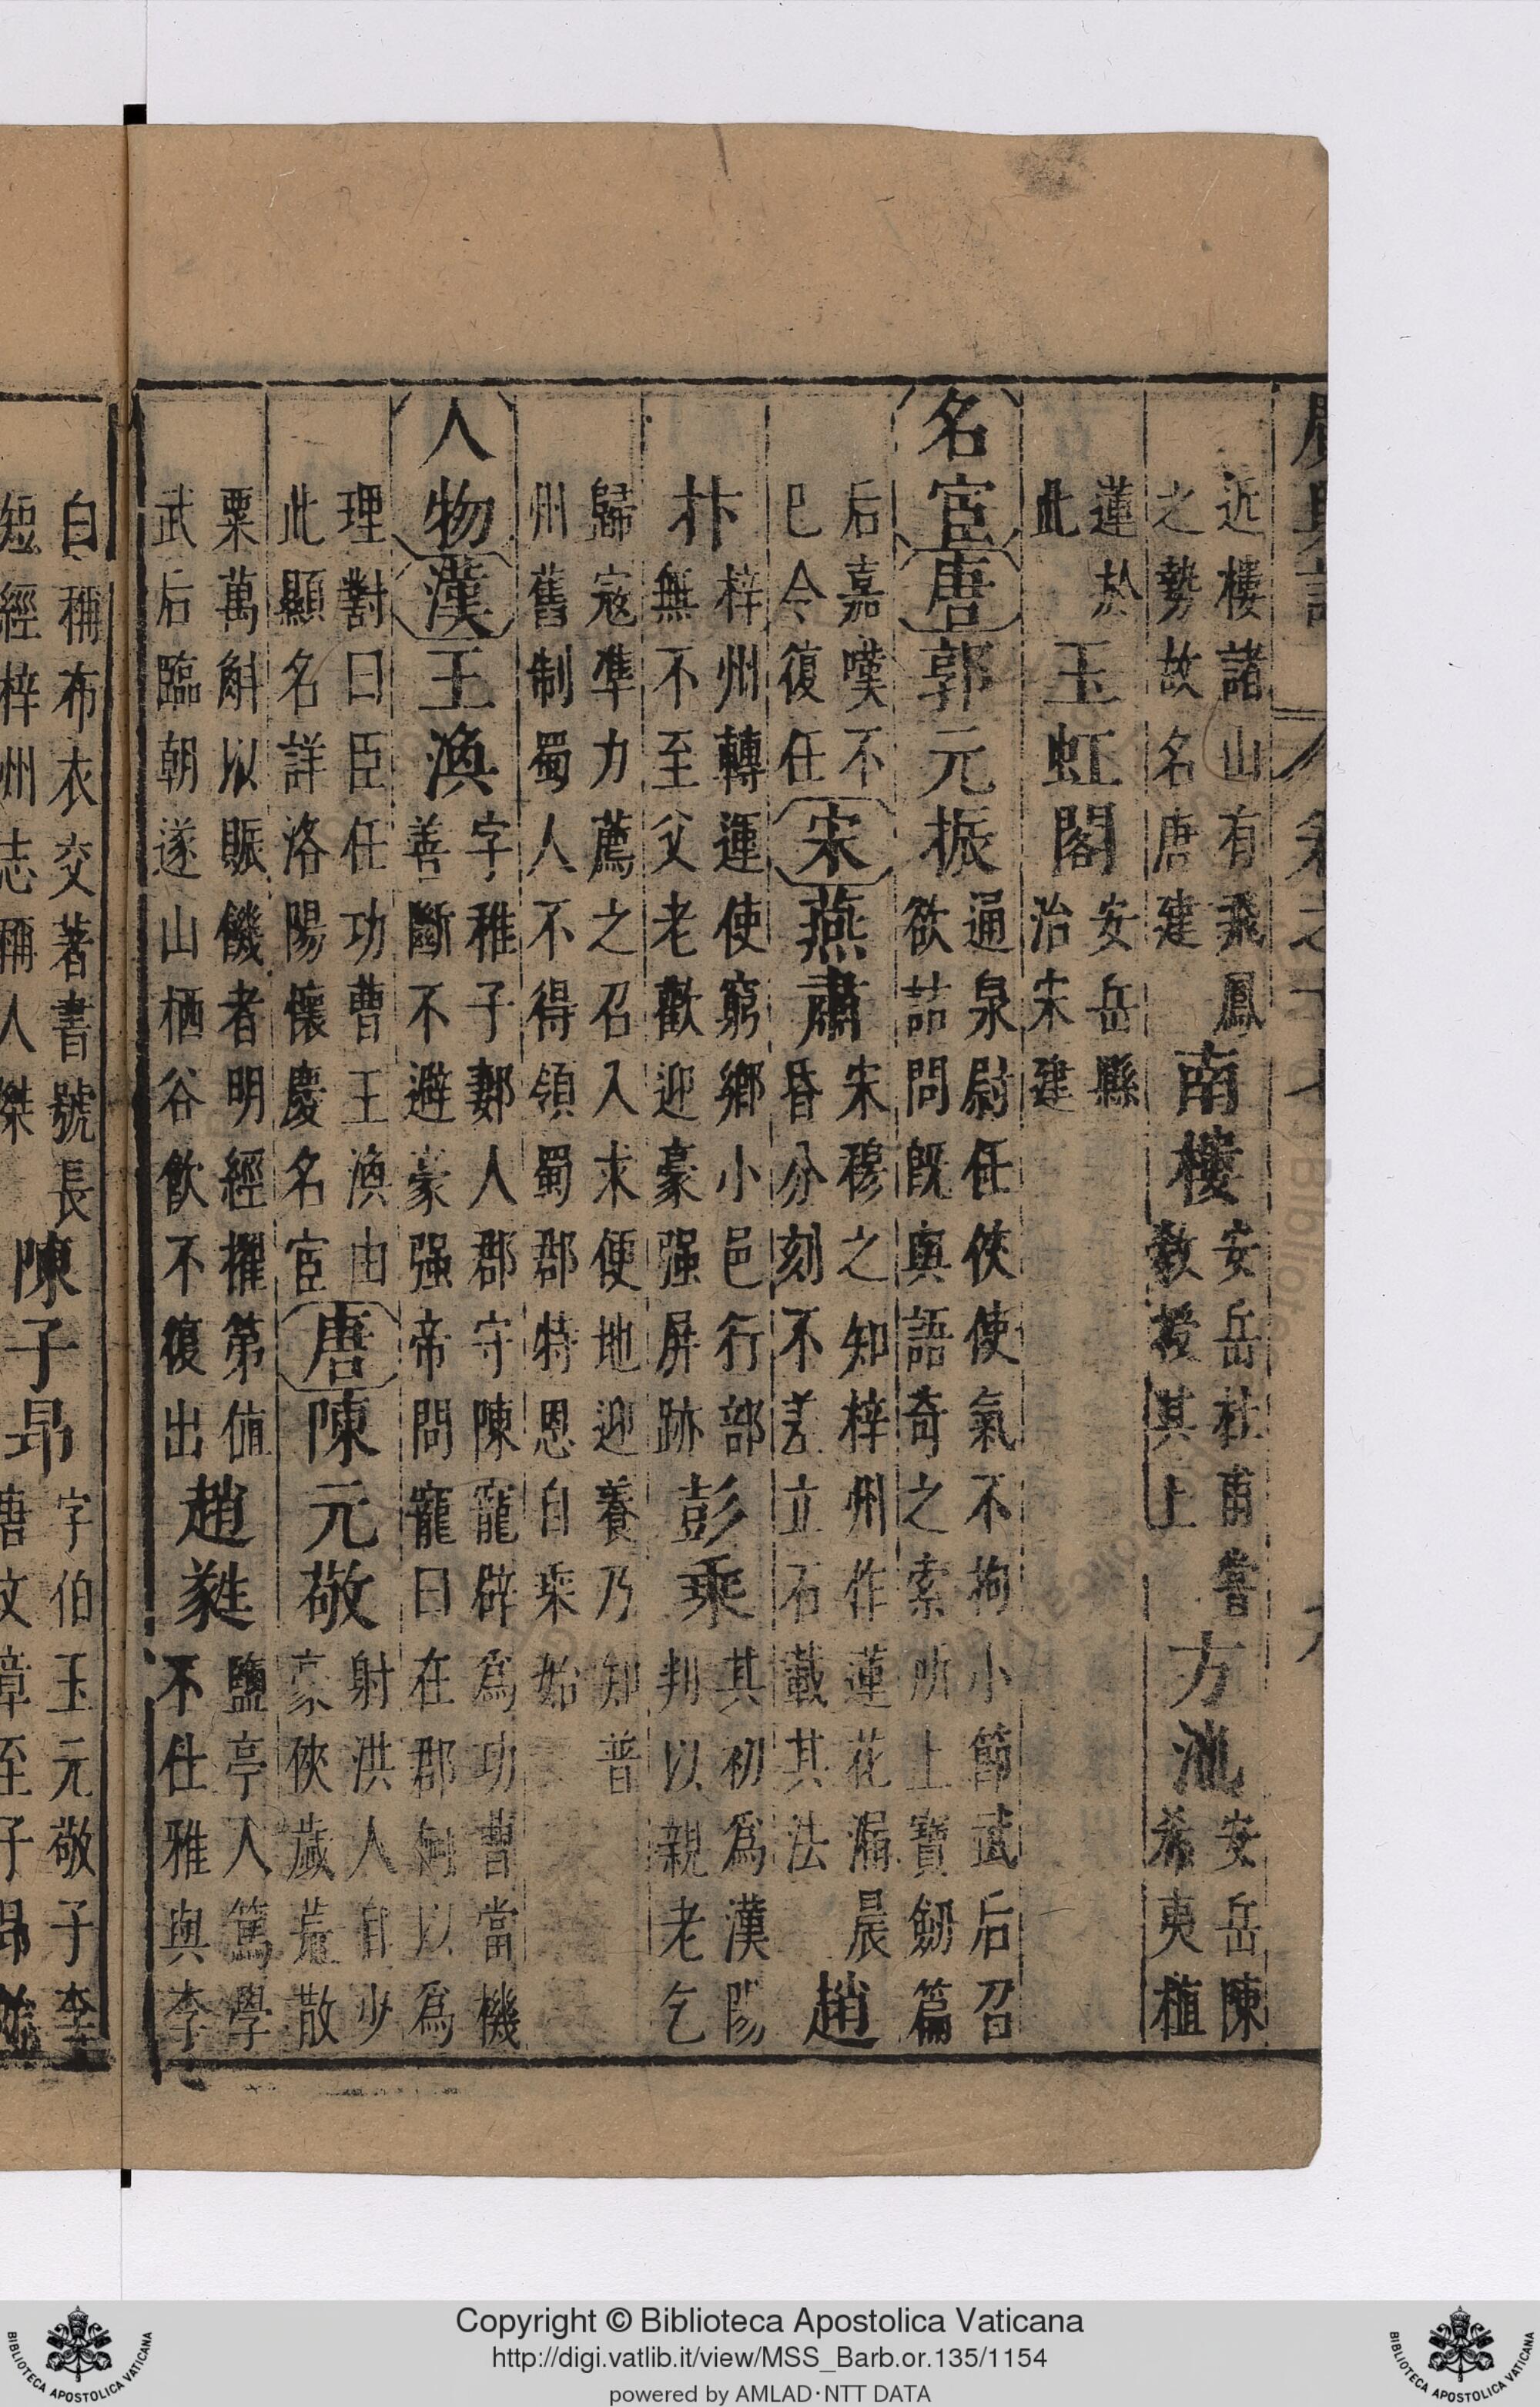 近樓諸山有飛鳳
之勢故名唐建
南樓
安岳杜甫嘗
教授其上
方池
安岳陳
希夷植
蓮於
此
玉虹閣
安岳縣
治宋建
名宦
唐
郭元振
通泉尉任俠使氣不拘小節武后召
欲詰問既與語奇之索所上寶劒篇
后嘉嘆不
巳令復任
宋
燕肅
宋穆之知梓州作蓮花漏晨
昏分刻不差立石載其法
趙
抃
梓州轉運使窮鄉小邑行部
無不至父老歡迎豪强屏跡
彭乘
其初爲漢陽
判以親老乞
歸寇凖力薦之召入求便地迎養乃知普
州舊制蜀人不得領蜀郡郡特恩自乘始
人物
漢
王渙
字稚子郪人郡守陳寵辟爲功曹當機
善斷不避豪强帝問寵曰在郡何以爲
理對曰臣任功曹王渙由
此顯名詳洛陽懷慶名宦
唐
陳元敬
射洪人自少
豪俠歲荒散
粟萬斛以賑饑者明經擢第值
武后臨朝遂山栖谷飲不復出
趙蕤
鹽亭人篤學
不仕雅與李
白稱布衣交著書號長
短經梓州志稱人傑
陳子昻
字伯玉元敬子李
唐文章至子昻始
Copyright © Biblioteca Apostolica Vaticana
http://digi.vatlib.it/view/MSS_Barb.or.135/1154
powered by AMLAD·NTT DATA
BIBLIOTECA APOSTOLICA VATICANA
BIBLIOTECA APOSTOLICA VATICANA